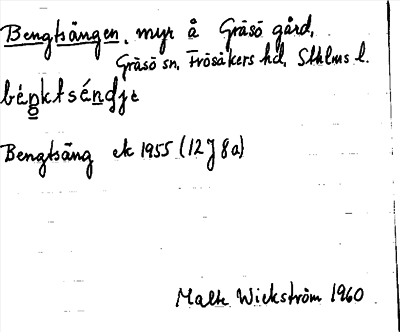 Bengtsängen, myr å Gräsö gård,
Gräsö sn, Frösåkers hd, Sthlms l.
béŋktséndjɛ
Bengtsäng ek 1955 (12J8a)
Malte Wickström 1960